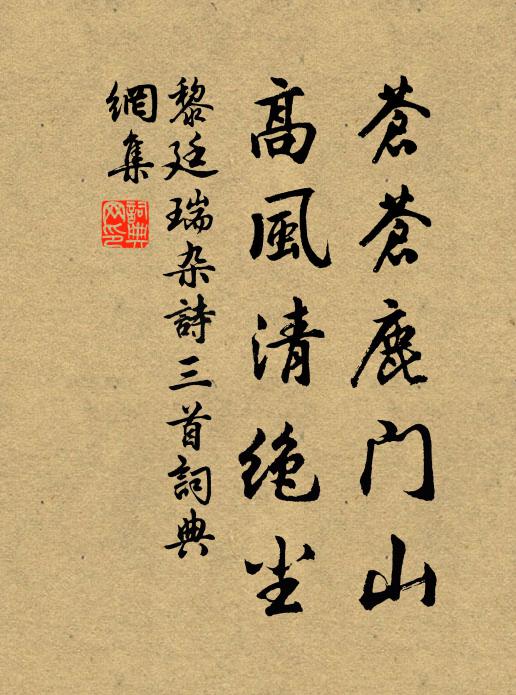 蒼蒼鹿门山
髙風清絶尘
黎廷瑞杂詩三首詞典
網集
詞典
网印